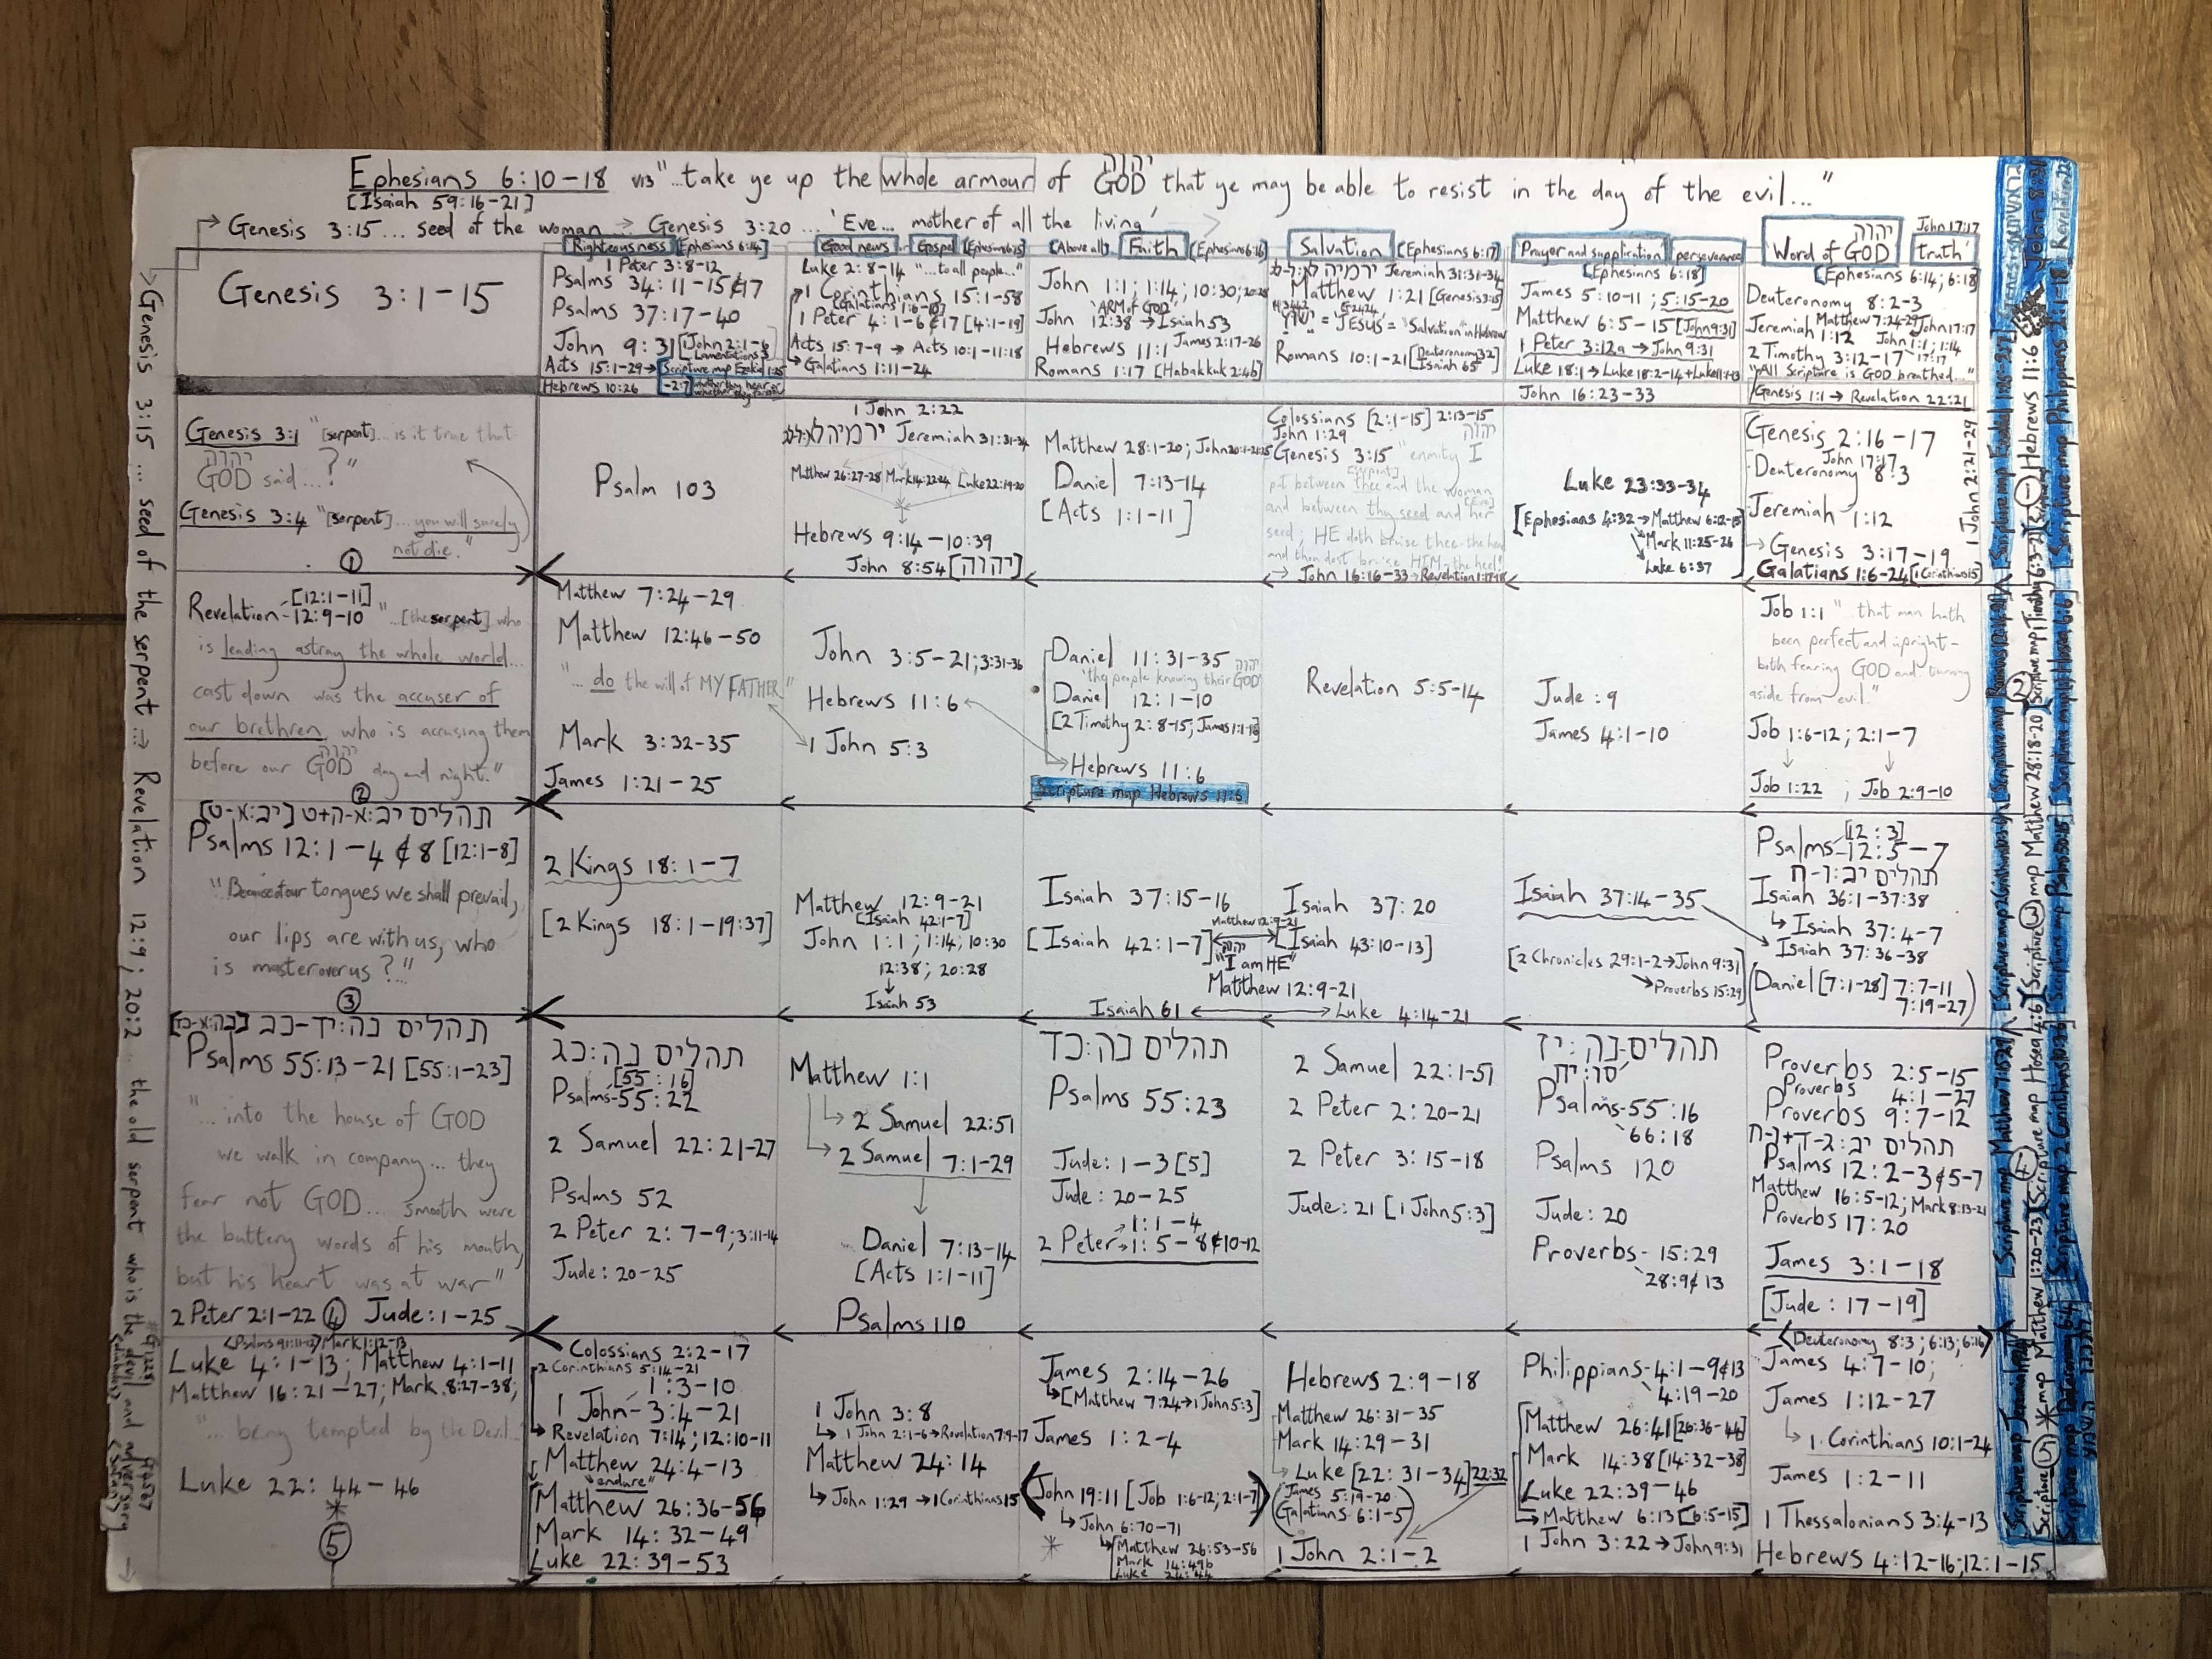 יהוה
Ephesians 6:10-18 v13 "...take ye up the whole armour of GOD that ye may be able to resist in the day of the evil..."
[Isaiah 59:16-21]
Genesis 3:15... seed of the woman → Genesis 3:20 ... 'Eve... mother of all the living'
Genesis 3:1-15
Righteousness [Ephesians 6:14]
1 Peter 3:8-12
Psalms 34:11-15 & 17
Psalms 37:17-40
John 9:31 [1 John 2:1-6]
Lamentations 3
Acts 15:1-29 → Scripture map Ezekiel 1:25
Hebrews 10:26 -2:7
Good news Gospel [Ephesians 6:15]
Luke 2:8-14 "...to all people..."
1 Corinthians 15:1-58
[Galatians 1:6-10]
1 Peter 4:1-6 & 17 [4:1-19]
Acts 15:7-9 → Acts 10:1-11:18
Galatians 1:11-24
(Above all) Faith [Ephesians 6:16]
John 1:1; 1:14; 10:30; 20:28
'ARM of GOD'
John 12:38 → Isaiah 53
Hebrews 11:1 James 2:17-26
Romans 1:17 [Habakkuk 2:4b]
Salvation [Ephesians 6:17]
ירמיה Jeremiah 31:31-34
Matthew 1:21 [Genesis 3:15]
= JESUS = "Salvation" in Hebrew
Romans 10:1-21 [Deuteronomy 32]
Isaiah 65
Prayer and supplication perseverance
[Ephesians 6:18]
James 5:10-11; 5:15-20
Matthew 6:5-15 [John 9:31]
1 Peter 3:12a → John 9:31
Luke 18:1 → Luke 18:2-14 + Luke 11:1-13
John 16:23-33
יהוה John 17:17
Word of GOD 'truth'
[Ephesians 6:14; 6:18]
Deuteronomy 8:2-3
Matthew 7:24-29 John 17:17
Jeremiah 1:12 John 1:1; 1:14
2 Timothy 3:12-17 17:17
"All Scripture is GOD breathed..."
Genesis 1:1 → Revelation 22:21
Genesis 3:1 "[serpent]... is it true that
יהוה
GOD said...?"
Genesis 3:4 "[serpent]... you will surely
not die."
①
Psalm 103
1 John 2:22
ירמיה Jeremiah 31:31-34
Matthew 26:27-28 Mark 14:22-24 Luke 22:19-20
Hebrews 9:14-10:39
John 8:54 [יהוה]
Matthew 28:1-20; John 20:1-21:25
Daniel 7:13-14
[Acts 1:1-11]
Colossians [2:1-15] 2:13-15
John 1:29 יהוה
Genesis 3:15 "enmity I
[serpent]
put between thee and the woman
[Eve]
and between thy seed and her
seed; HE doth bruise thee-the head
and thou dost bruise HIM-the heel!
→ John 16:16-33 → Revelation 1:17-18
Luke 23:33-34
[Ephesians 4:32 → Matthew 6:12-15
Mark 11:25-26
Luke 6:37
Genesis 2:16-17
John 17:17
Deuteronomy 8:3
Jeremiah 1:12
Genesis 3:17-19
Galatians 1:6-24 [1 Corinthians 15]
1 John 2:21-29
[12:1-11]
Revelation 12:9-10 "...[the serpent] who
is leading astray the whole world...
cast down was the accuser of
our brethren, who is accusing them
יהוה
before our GOD day and night."
②
Matthew 7:24-29
Matthew 12:46-50
"... do the will of MY FATHER"
Mark 3:32-35
James 1:21-25
John 3:5-21; 3:31-36
Hebrews 11:6
1 John 5:3
Daniel 11:31-35
יהוה
'the people knowing their GOD'
Daniel 12:1-10
[2 Timothy 2:8-15; James 1:1-18]
Hebrews 11:6
Scripture map Hebrews 11:6
Revelation 5:5-14
Jude:9
James 4:1-10
Job 1:1 "that man hath
been perfect and upright-
both fearing GOD and turning
aside from evil."
Job 1:6-12; 2:1-7
Job 1:22 , Job 2:9-10
תהלים יב:א-ה+ט [יב:א-ט]
Psalms 12:1-4 & 8 [12:1-8]
"Because of our tongues we shall prevail,
our lips are with us, who
is master over us?"
③
2 Kings 18:1-7
[2 Kings 18:1-19:37]
Matthew 12:9-21
[Isaiah 42:1-7]
John 1:1; 1:14; 10:30
12:38; 20:28
Isaiah 53
Isaiah 37:15-16
Matthew 12:9-21
[Isaiah 42:1-7] [Isaiah 43:10-13]
יהוה
"I am HE"
Matthew 12:9-21
Isaiah 61 Luke 4:14-21
Isaiah 37:20
Isaiah 37:14-35
[2 Chronicles 29:1-2 → John 9:31]
Proverbs 15:29
[12:3]
Psalms 12:5-7
תהלים יב:ו-ח
Isaiah 36:1-37:38
Isaiah 37:4-7
Isaiah 37:36-38
(Daniel [7:1-28] 7:7-11
7:19-27)
תהלים נה:יד-כב
Psalms 55:13-21 [55:1-23]
"...into the house of GOD
we walk in company... they
fear not GOD... smooth were
the buttery words of his mouth,
but his heart was at war"
2 Peter 2:1-22 ④ Jude:1-25
תהלים נה:כג
[55:16]
Psalms 55:22
2 Samuel 22:21-27
Psalms 52
2 Peter 2:7-9; 3:11-14
Jude:20-25
Matthew 1:1
2 Samuel 22:51
2 Samuel 7:1-29
Daniel 7:13-14
[Acts 1:1-11]
Psalms 110
תהלים נה:כד
Psalms 55:23
Jude:1-3 [5]
Jude:20-25
1:1-4
2 Peter 1:5-8 & 10-12
2 Samuel 22:1-51
2 Peter 2:20-21
2 Peter 3:15-18
Jude:21 [1 John 5:3]
תהלים נה:יז
סו:יח
Psalms 55:16
66:18
Psalms 120
Jude:20
Proverbs 15:29
28:9 & 13
Proverbs 2:5-15
Proverbs 4:1-27
Proverbs 9:7-12
תהלים יב:ג-ד+ו-ח
Psalms 12:2-3 & 5-7
Matthew 16:5-12; Mark 8:13-21
Proverbs 17:20
James 3:1-18
[Jude:17-19]
<Psalms 91:11-12> Mark 1:12-13
Luke 4:1-13; Matthew 4:1-11
Matthew 16:21-27; Mark 8:27-38;
"...being tempted by the Devil..."
Luke 22:44-46
*
⑤
Colossians 2:2-17
2 Corinthians 5:14-21
1:3-10
1 John 3:4-21
Revelation 7:14; 12:10-11
Matthew 24:4-13
"endure"
Matthew 26:36-56
Mark 14:32-49
Luke 22:39-53
1 John 3:8
1 John 2:1-6 → Revelation 7:9-17
Matthew 24:14
John 1:29 → 1 Corinthians 15
James 2:14-26
[Matthew 7:24 → 1 John 5:3]
James 1:2-4
(John 19:11 [Job 1:6-12; 2:1-7])
John 6:70-71
*
Matthew 26:53-56
Mark 14:49b
Hebrews 2:9-18
Matthew 26:31-35
Mark 14:29-31
Luke [22:31-34] 22:32
James 5:19-20
Galatians 6:1-5
1 John 2:1-2
Philippians 4:1-9 & 13
4:19-20
Matthew 26:41 [26:36-44]
Mark 14:38 [14:32-38]
Luke 22:39-46
Matthew 6:13 [6:5-15]
1 John 3:22 → John 9:31
<Deuteronomy 8:3; 6:13; 6:16>
James 4:7-10;
James 1:12-27
1 Corinthians 10:1-24
James 1:2-11
1 Thessalonians 3:4-13
Hebrews 4:12-16; 12:1-15
Genesis 3:15 ... seed of the serpent ... → Revelation 12:9; 20:2 ... the old serpent who is the devil and adversary